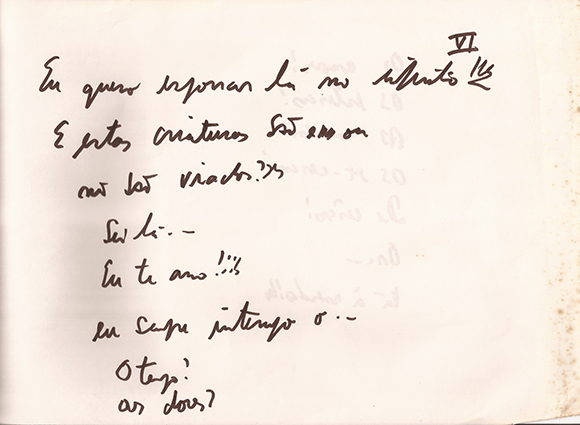 VI
Eu quero esporrar lá no infinito!!!
E estas criaturas são em ou
não são viados???
Sei lá...
Eu te amo!!!!
eu sempre interrogo o...
O tempo?
as dores?